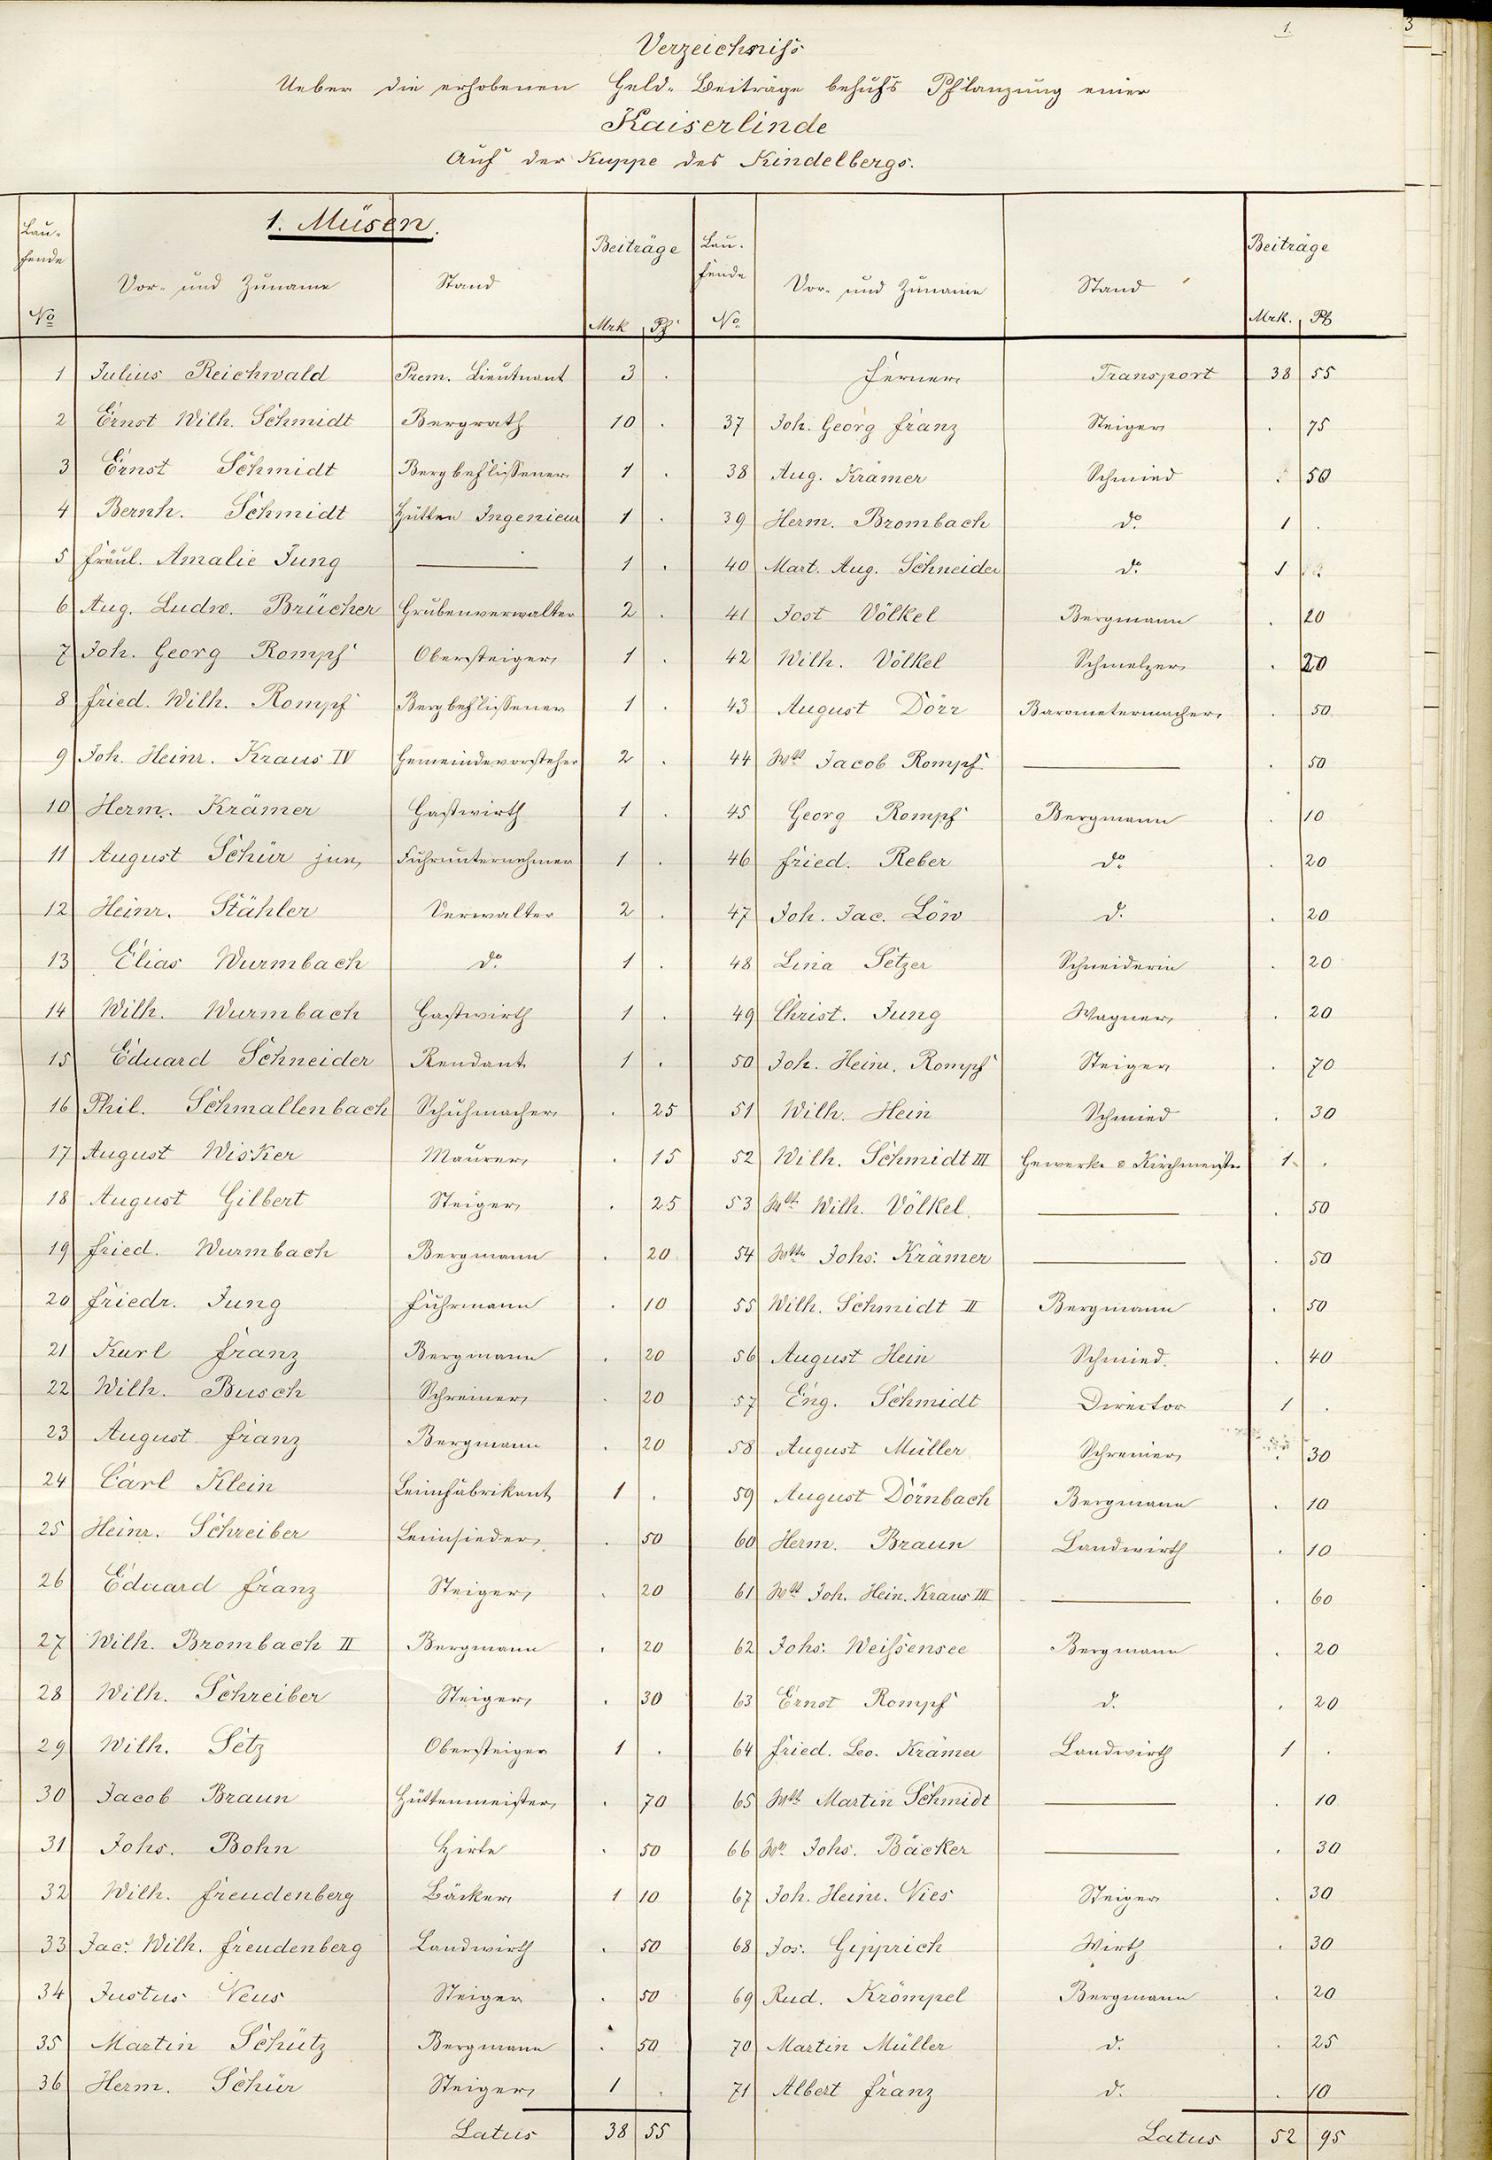 1.
3
Verzeichniss
Ueber die erhobenen Geld-Beiträge behufs Pflanzung einer
Kaiserlinde
Auf der Kuppe des Kindelbergs.
1. Müsen.
Laufende No Vor- und Zuname Stand Beiträge Mrk Pf
1 Julius Reichwald Prem. Lieutnant 3 .
2 Ernst Wilh. Schmidt Bergrath 10 .
3 Ernst Schmidt Bergbeflissener 1 .
4 Bernh. Schmidt Hütten Ingenieur 1 .
5 Fräul. Amalie Jung — 1 .
6 Aug. Ludw. Brücher Grubenverwalter 2 .
7 Joh. Georg Rompf Obersteiger 1 .
8 Fried. Wilh. Rompf Bergbeflissener 1 .
9 Joh. Heinr. Kraus IV Gemeindevorsteher 2 .
10 Herm. Krämer Gastwirth 1 .
11 August Schür jun. Fuhrunternehmer 1 .
12 Heinr. Stähler Verwalter 2 .
13 Elias Wurmbach do. 1 .
14 Wilh. Wurmbach Gastwirth 1 .
15 Eduard Schneider Rendant 1 .
16 Phil. Schmallenbach Schuhmacher . 25
17 August Wisker Maurer . 15
18 August Gilbert Steiger . 25
19 Fried. Wurmbach Bergmann . 20
20 Friedr. Jung Fuhrmann . 10
21 Karl Franz Bergmann . 20
22 Wilh. Busch Schreiner . 20
23 August Franz Bergmann . 20
24 Carl Klein Leimfabrikant 1 .
25 Heinr. Schreiber Leimsieder . 50
26 Eduard Franz Steiger . 20
27 Wilh. Brombach II Bergmann . 20
28 Wilh. Schreiber Steiger . 30
29 Wilh. Setz Obersteiger 1 .
30 Jacob Braun Hüttenmeister . 70
31 Johs. Bohn Hirte . 50
32 Wilh. Freudenberg Bäcker 1 10
33 Jac. Wilh. Freudenberg Landwirth . 50
34 Justus Neus Steiger . 50
35 Martin Schütz Bergmann . 50
36 Herm. Schür Steiger 1 .
Latus 38 55
Laufende No. Vor- und Zuname Stand Beiträge Mrk. Pf
Ferner Transport 38 55
37 Joh. Georg Franz Steiger . 75
38 Aug. Krämer Schmied . 50
39 Herm. Brombach do. 1 .
40 Mart. Aug. Schneider do. 1 .
41 Jost Völkel Bergmann . 20
42 Wilh. Völkel Schmelzer . 20
43 August Dörr Barometermacher . 50
44 Wtt Jacob Rompf — . 50
45 Georg Rompf Bergmann . 10
46 Fried. Reber do. . 20
47 Joh. Jac. Löw d. . 20
48 Lina Setzer Schneiderin . 20
49 Christ. Jung Wagner . 20
50 Joh. Heinr. Rompf Steiger . 70
51 Wilh. Hein Schmied . 30
52 Wilh. Schmidt III Gewerke & Kirchmeister 1 .
53 Wtt Wilh. Völkel — . 50
54 Wtt Johs: Krämer — . 50
55 Wilh. Schmidt II Bergmann . 50
56 August Hein Schmied . 40
57 Eng. Schmidt Director 1 .
58 August Müller Schreiner . 30
59 August Dörnbach Bergmann . 10
60 Herm. Braun Landwirth . 10
61 Wtt Joh. Hein. Kraus III — . 60
62 Johs: Weissensee Bergmann . 20
63 Ernst Rompf d. . 20
64 Fried. Leo. Krämer Landwirth 1 .
65 Wtt Martin Schmidt — . 10
66 Wtt Johs. Bäcker — . 30
67 Joh. Heinr. Vies Steiger . 30
68 Jos. Gipprich Wirth . 30
69 Rud. Krömpel Bergmann . 20
70 Martin Müller d. . 25
71 Albert Franz d. . 10
Latus 52 95